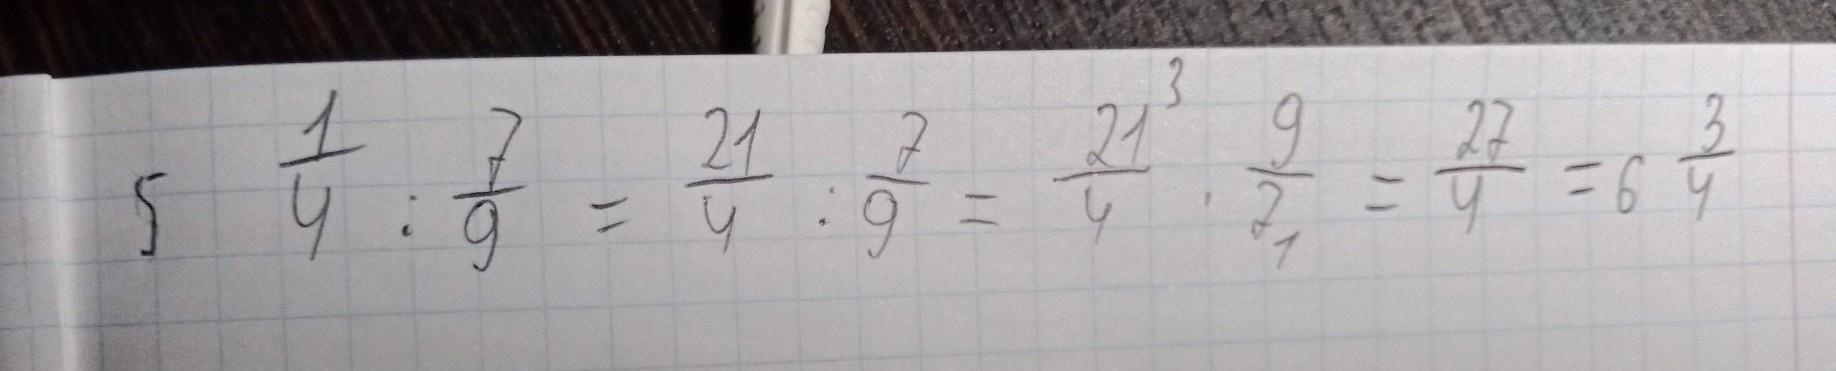 5 1/4 : 7/9 = 21/4 : 7/9 = 21³/4 · 9/7₁ = 27/4 = 6 3/4